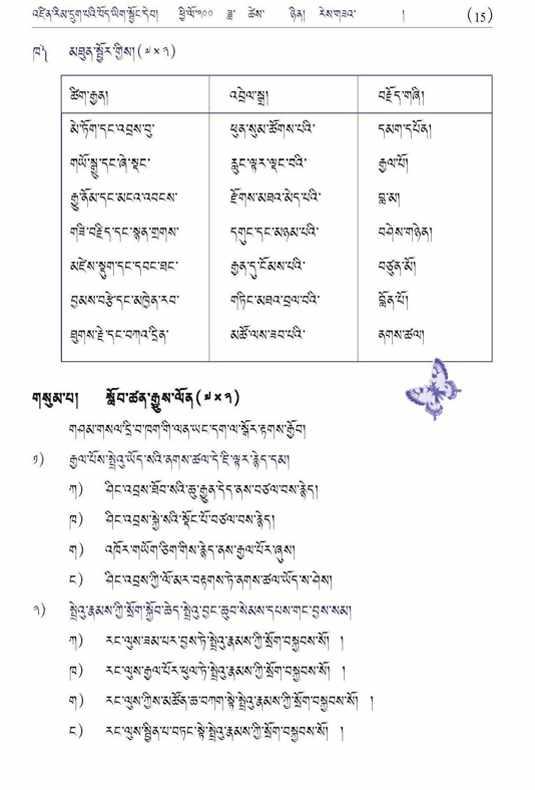 འཛིན་རིམ་དྲུག་པའི་བོད་ཡིག་སློང་དེབ། ཕྱི་ལོ་༢༠༠ ཟླ་ ཚེས་ ཉིན། རེས་གཟའ་ ། (15)
ཁ༽ མཐུན་སྦྱོར་གྱིས། (༧ × ༡)
ཚིག་རྒྱན། འབྲེལ་སྒྲ། བརྗོད་གཞི།
མེ་ཏོག་དང་འབྲས་བུ་ ཕུན་སུམ་ཚོགས་པའི་ དམག་དཔོན།
གཡོ་སྒྱུ་དང་ཞེ་སྡང་ རླུང་ལྟར་ལྡང་བའི་ རྒྱལ་པོ།
རྒྱུ་ནོམ་དང་མངའ་འབངས་ རྫོགས་མཐའ་མེད་པའི་ བླ་མ།
གཟི་བརྗིད་དང་སྙན་གྲགས་ དགུང་དང་མཉམ་པའི་ བཤེས་གཉེན།
མཛེས་སྡུག་དང་དབང་ཐང་ རྒྱན་དུ་ངོམས་པའི་ བཙུན་མོ།
བྱམས་བརྩེ་དང་མཁྱེན་རབ་ གཏིང་མཐའ་བྲལ་བའི་ བློན་པོ།
ཐུགས་རྗེ་དང་བཀའ་དྲིན་ མཚོ་ལས་ཟབ་པའི་ ནགས་ཚལ།
གསུམ་པ། སློབ་ཚན་རྒྱུས་ལོན (༧ × ༡)
གཤམ་གསལ་དྲི་བ་ཁག་གི་ལན་ཡང་དག་ལ་སྐོར་རྟགས་རྒྱོབ།
༡) རྒྱལ་པོས་སྤྲེའུ་ཡོད་སའི་ནགས་ཚལ་དེ་ཇི་ལྟར་རྙེད་དམ།
ཀ) ཤིང་འབྲས་ཐོབ་སའི་ཆུ་རྒྱུན་དེད་ནས་བཙལ་བས་རྙེད།
ཁ) ཤིང་འབྲས་སྐྱེ་སའི་སྡོང་པོ་བཙལ་བས་རྙེད།
ག) འཁོར་གཡོག་ཅིག་གིས་རྙེད་ནས་རྒྱལ་པོར་ཞུས།
ང) ཤིང་འབྲས་ཀྱི་ལོ་མར་བརྟགས་ཏེ་ནགས་ཚལ་ཡོད་ས་ཤེས།
༢) སྤྲེའུ་རྣམས་ཀྱི་སྲོག་སྐྱོབ་ཆེད་སྤྲེའུ་བྱང་ཆུབ་སེམས་དཔས་གང་བྱས་སམ།
ཀ) རང་ལུས་ཟམ་པར་བྱས་ཏེ་སྤྲེའུ་རྣམས་ཀྱི་སྲོག་བསྐྱབས་སོ། །
ཁ) རང་ལུས་རྒྱལ་པོར་ཕུལ་ཏེ་སྤྲེའུ་རྣམས་ཀྱི་སྲོག་བསྐྱབས་སོ། །
ག) རང་ལུས་ཀྱིས་མཚོན་ཆ་བཀག་སྟེ་སྤྲེའུ་རྣམས་ཀྱི་སྲོག་བསྐྱབས་སོ། །
ང) རང་ལུས་སྦྱིན་པ་བཏང་སྟེ་སྤྲེའུ་རྣམས་ཀྱི་སྲོག་བསྐྱབས་སོ། །